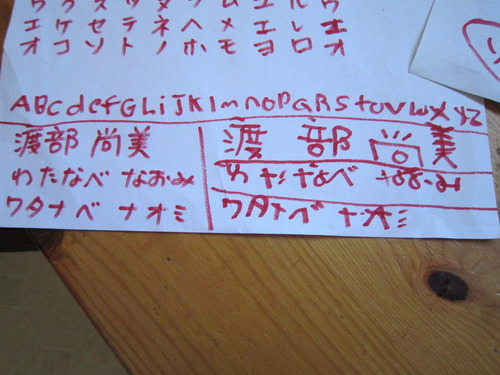 ウクスツヌフムユルウ
エケセテネヘメエレエ
オコソトノホモヨロオ
ABCdefGhiJKlmnoPQRStuvwxyz
渡部 尚美
わたなべ なおみ
ワタナベ ナオミ
渡部 尚美
わたなべ なおみ
ワタナベ ナオミ